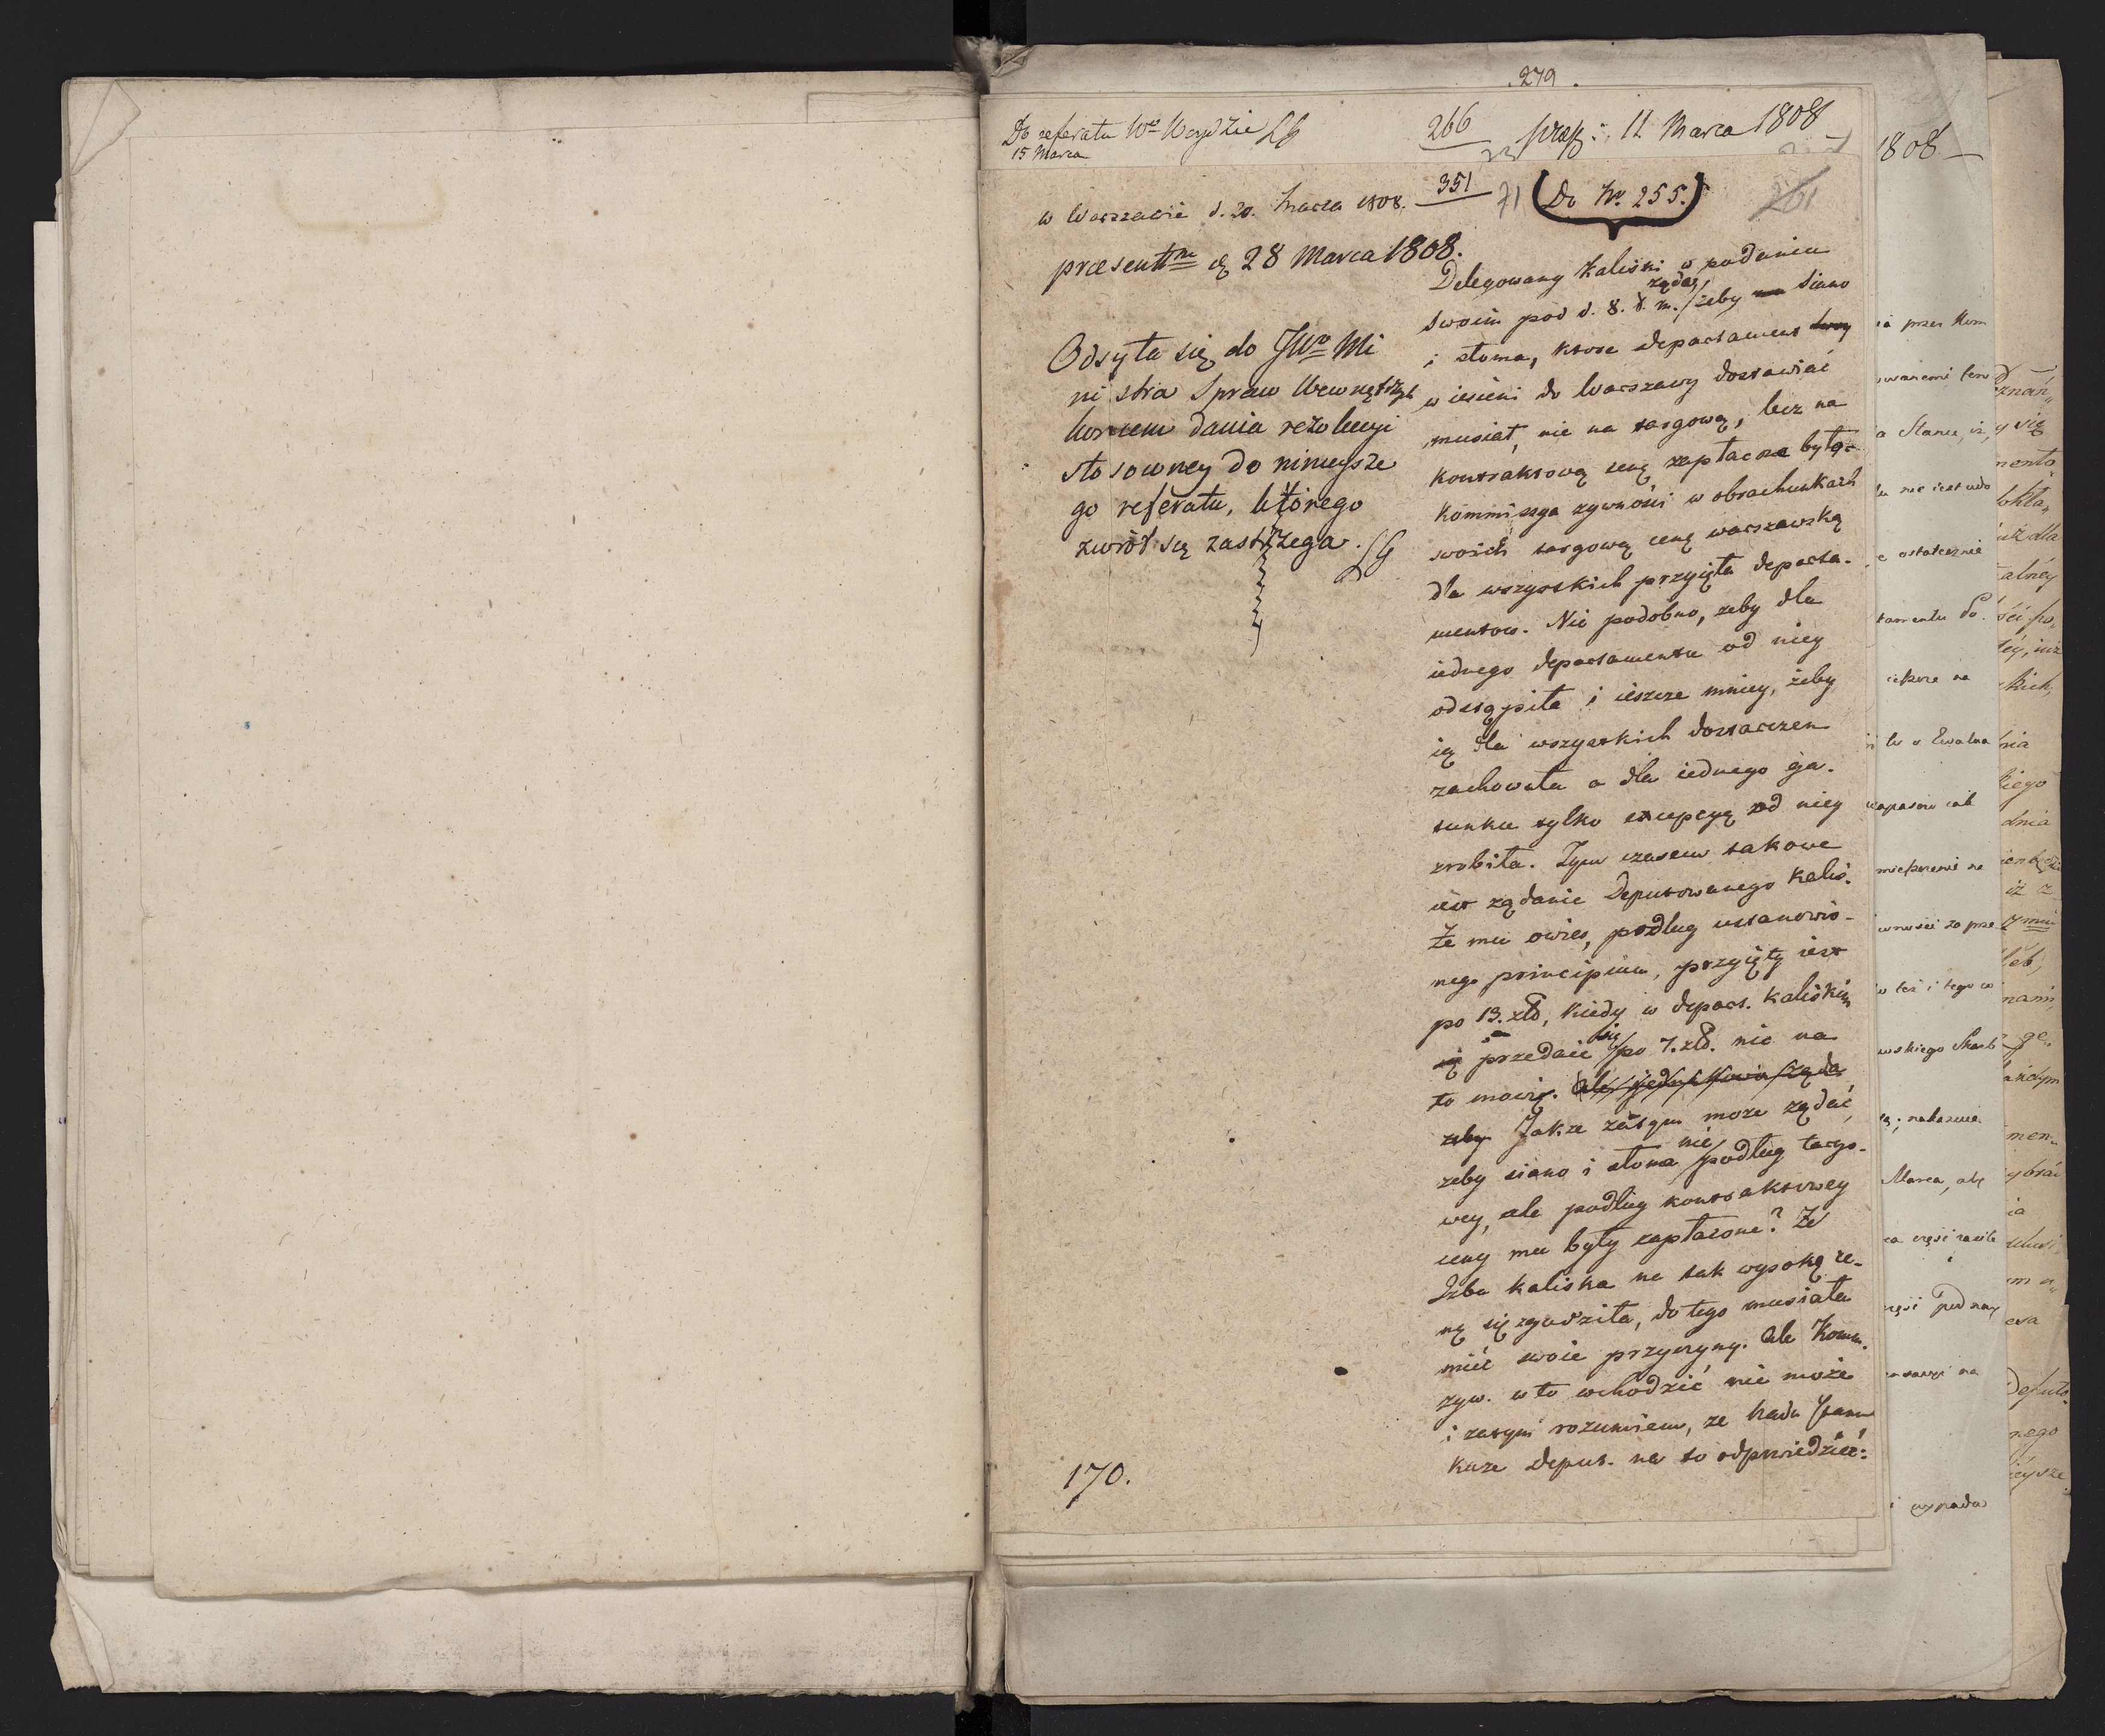 279.
Do referatu Wo Woydzie LG
15 Marca
266
præs: 11 Marca 1808
351
71
(Do No. 255.)
261
w Warszawie d. 20. Marca 1808.
præsenttm d 28 Marca 1808.
Odsyła się do JWo Mi
nistra Spraw Wewnętrznych
koncem dania rezolucyi
stosowney do nineysze
go referatu, którego
zwrót się zastrzega. LG
170.
Delegowany kaliski w podaniu
swoim pod d. 8. t. m. żąda, żeby siano
i słoma, ktore departament
w iesieni do Warszawy dostawiać
musiał, nie na targową, lecz na
kontraktową cenę zapłacone były.
Kommissya zywności w obrachunkach
swoich targową cenę warszawską
dla wszystkich przyięła departa-
mentow. Nie podobno, zeby dla
iednego departamentu od niey
odstąpiła i ieszcze mniey, żeby
ią dla wszystkich dostarczen
zachowała a dla iednego ga-
tunku tylko excepcyę od niey
zrobiła. Tym czasem takowe
iest ządanie Deputowanego kalis.
Że mu owies, podług ustanowio-
nego principium, przyięty iest
po 13. złt, kiedy w depart. kaliskim
przedaie się po 7. złt. nic na
to mowi. Ale
zeby Jakze zatym moze ządać,
zeby siano i słoma nie podług targo-
wey, ale podług kontraktowey
ceny mu były zapłacone? Że
Izba kaliska na tak wysoką ce-
nę się zgodziła, do tego musiała
mieć swoie przyczyny. Ale Komm.
zyw. w to wchodzić nie może
i zatym rozumiem, ze Rada Stanu
kaze Deput. na to odpowiedzieć:
1808